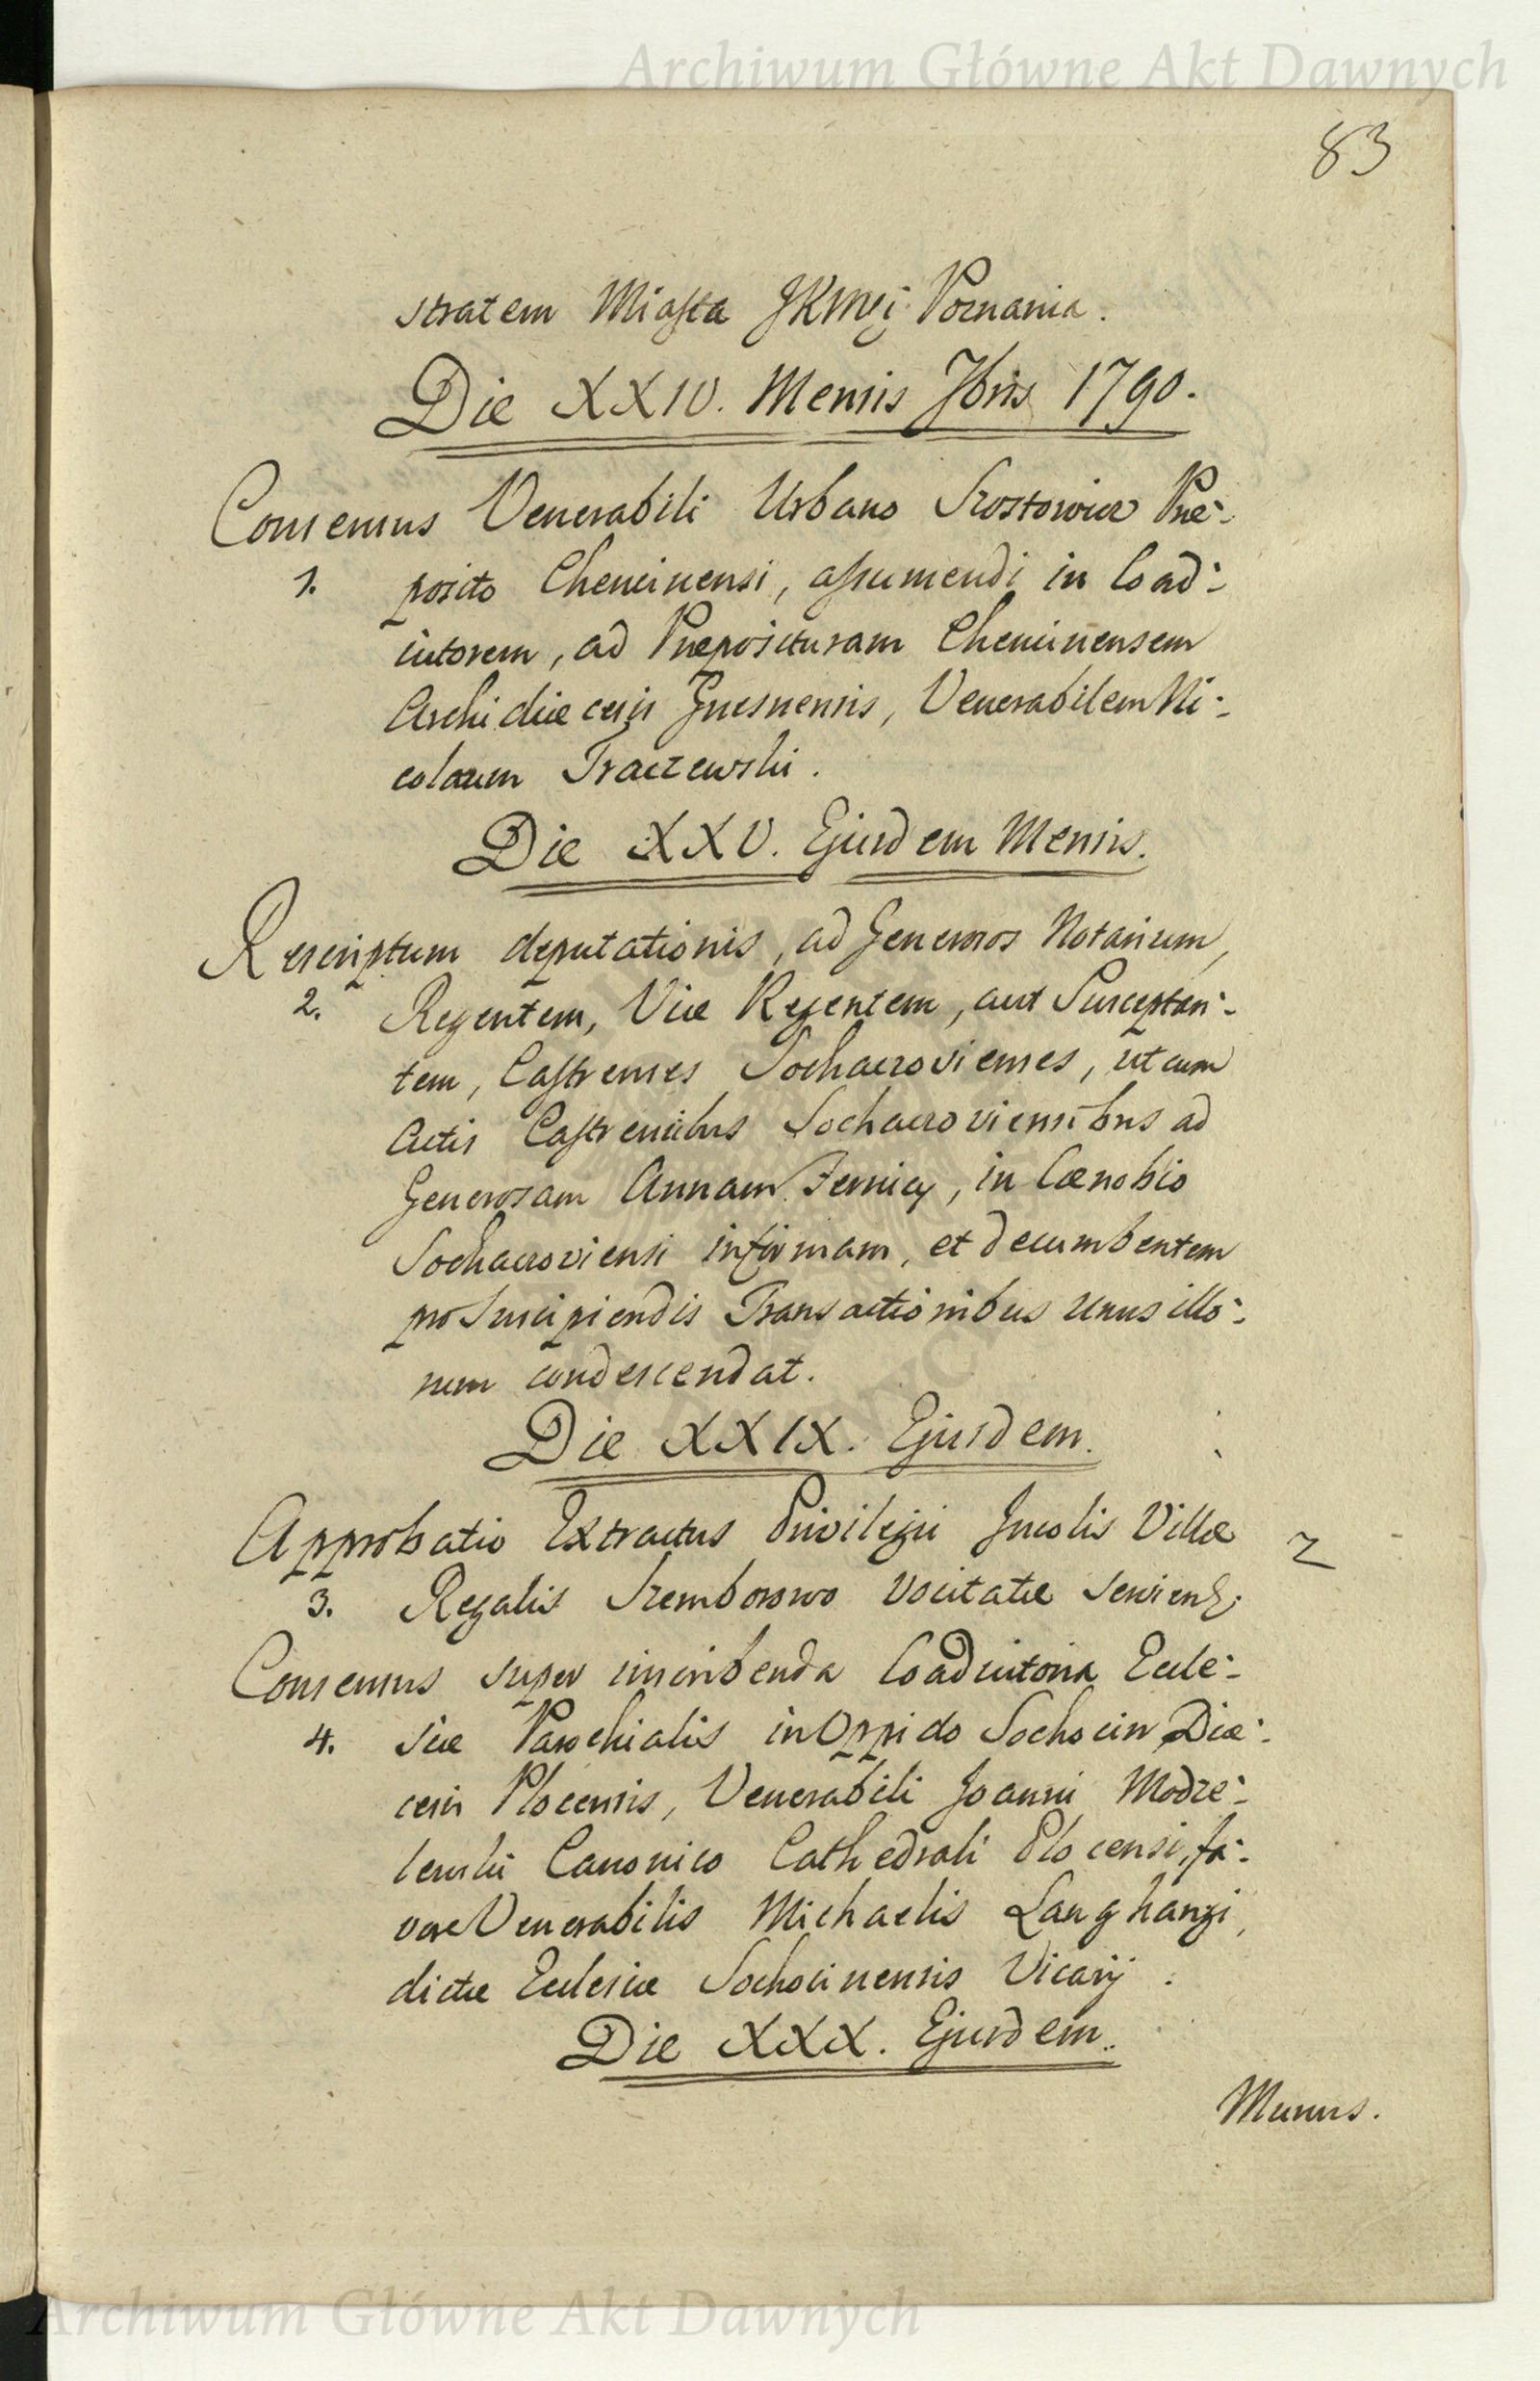 Archiwum Główne Akt Dawnych
83
stratem Miasta JKMci Poznania.
Die XXIV. Mensis 7bris 1790.
Consensus Venerabili Urbano Szostowicz Præ-
1. posito Chencinensi, assumendi in Coad-
iutorem, ad Præposituram Chencinensem
Archidiæcesis Gnesnensis, Venerabilem Ni-
colaum Traczewski.
Die XXV. Ejusdem Mensis.
Rescriptum deputationis, ad Generosos Notarium,
2. Regentem, Vice Regentem, aut Susceptan-
tem, Castrenses Sochaczovienses, ut cum
Actis Castrensibus Sochaczoviensibus ad
Generosam Annam, in Cœnobio
Sochaczoviensi infirmam, et decumbentem
pro Suscipiendis Transactionibus unus illo-
rum condescendat.
Die XXIX. Ejusdem.
Approbatio Extractus Privilegii Incolis Villæ
3. Regalis Szemborowo vocitatæ
Consensus super inscribenda Coadiutoria Eccle-
4. siæ Parochialis in Oppido Sochocin Diæ-
cesis Plocensis, Venerabili Joanni Modze-
lewski Canonico Cathedrali Plocensi, fa-
vore Venerabilis Michaelis
dictæ Ecclesiæ Sochocinensis Vicarij.
Die XXX. Ejusdem.
Munus.
Archiwum Główne Akt Dawnych